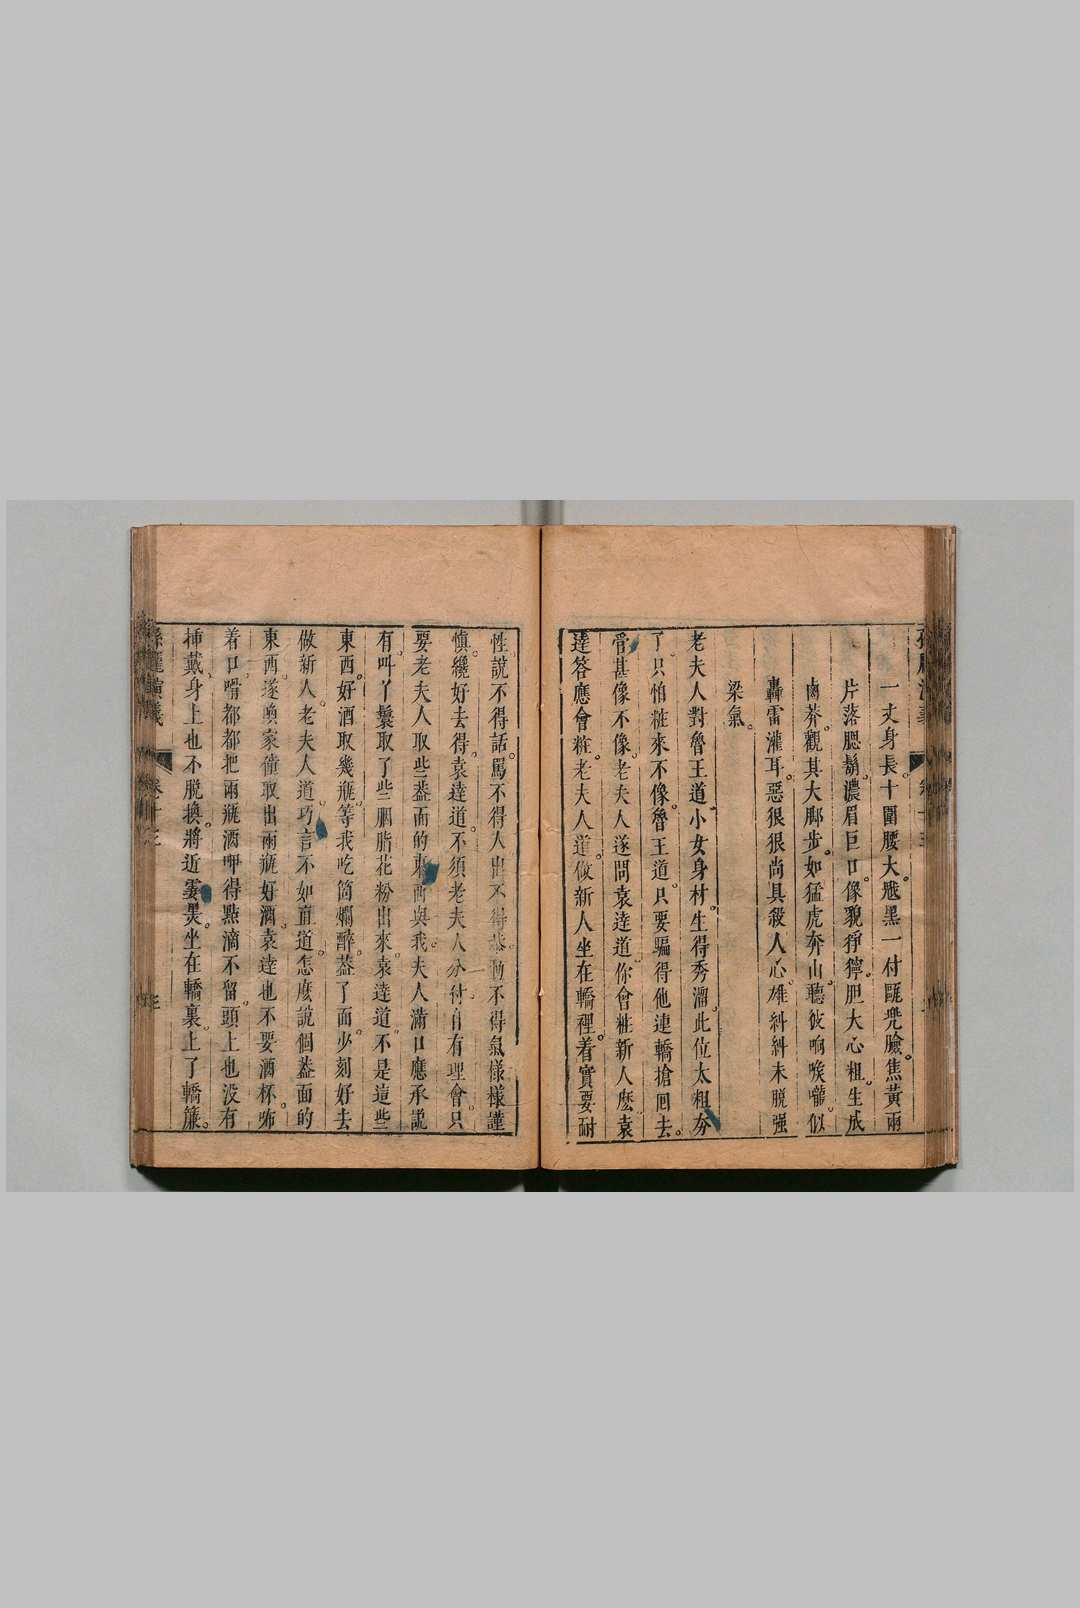 一丈身長。十圍腰大。魆黑一付甌兜臉。焦黃兩
片落腮鬍。濃眉巨口。像貌猙獰。胆大心粗。生成
鹵莽。觀其大脚步。如猛虎奔山。聽彼响喉嚨。似
轟雷灌耳。惡狠狠尚具殺人心。雄糾糾未脱强
梁氣。
老夫人對魯王道。小女身材。生得秀溜。此位太粗夯
了。只怕粧來不像。魯王道。只要騙得他連轎搶回去。
管甚像不像。老夫人遂問袁達道。你會粧新人麽。袁
達答應會粧。老夫人道。做新人坐在轎裡。着實要耐
性。說不得話。罵不得人。出不得恭。動不得氣。樣樣謹
慎。纔好去得。袁達道。不須老夫人分付。自有理會。只
要老夫人取些葢面的東西與我。夫人滿口應承。說
有。叫丫鬟取了些胭脂花粉出來。袁達道。不是這些
東西。好酒取幾瓶。等我吃箇爛醉。葢了面。少刻好去
做新人。老夫人道。巧言不如直道。怎麽說個葢面的
東西。遂喚家僮取出兩瓶好酒。袁達也不要酒杯。咘
着口嗗都都把兩瓶酒呷得點滴不留。頭上也没有
揷戴。身上也不脱換。將近雲黑。坐在轎裏。上了轎簾。
孫龐演義
卷十三